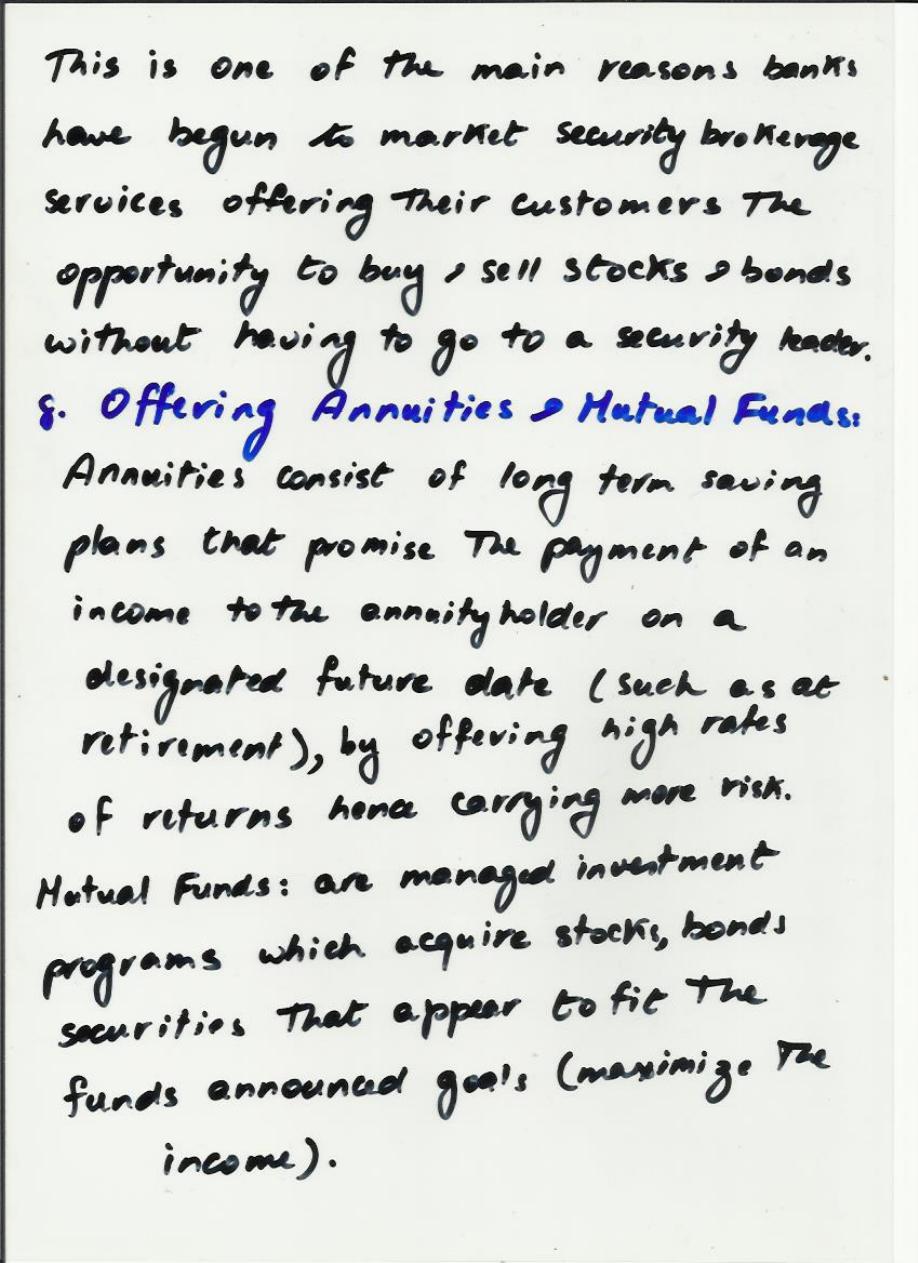 This is one of the main reasons banks
have begun to market security brokerage
services offering Their customers The
opportunity to buy & sell stocks & bonds
without having to go to a security leader.
8. Offering Annuities & Mutual Funds:
Annuities consist of long term saving
plans that promise The payment of an
income to the annuity holder on a
designated future date (such as at
retirement), by offering high rates
of returns hence carrying more risk.
Mutual Funds: are managed investment
programs which acquire stocks, bonds
securities That appear to fit The
funds announced goals (maximize The
income).